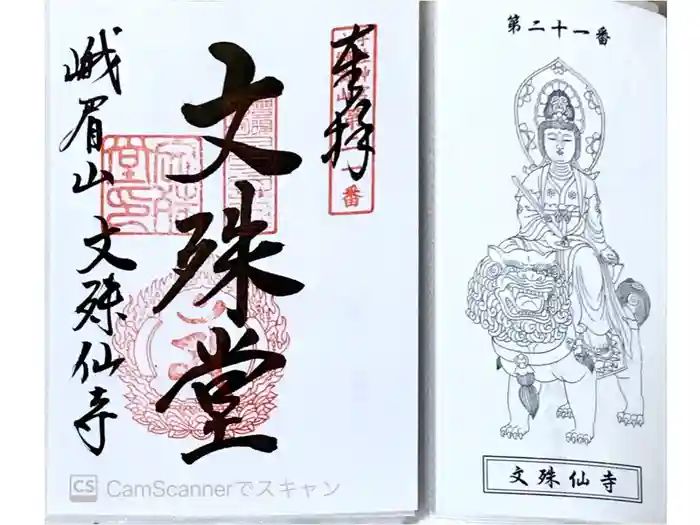 奉拝
文殊堂
峨眉山 文殊仙寺
第二十一番
文殊仙寺
CS CamScannerでスキャン